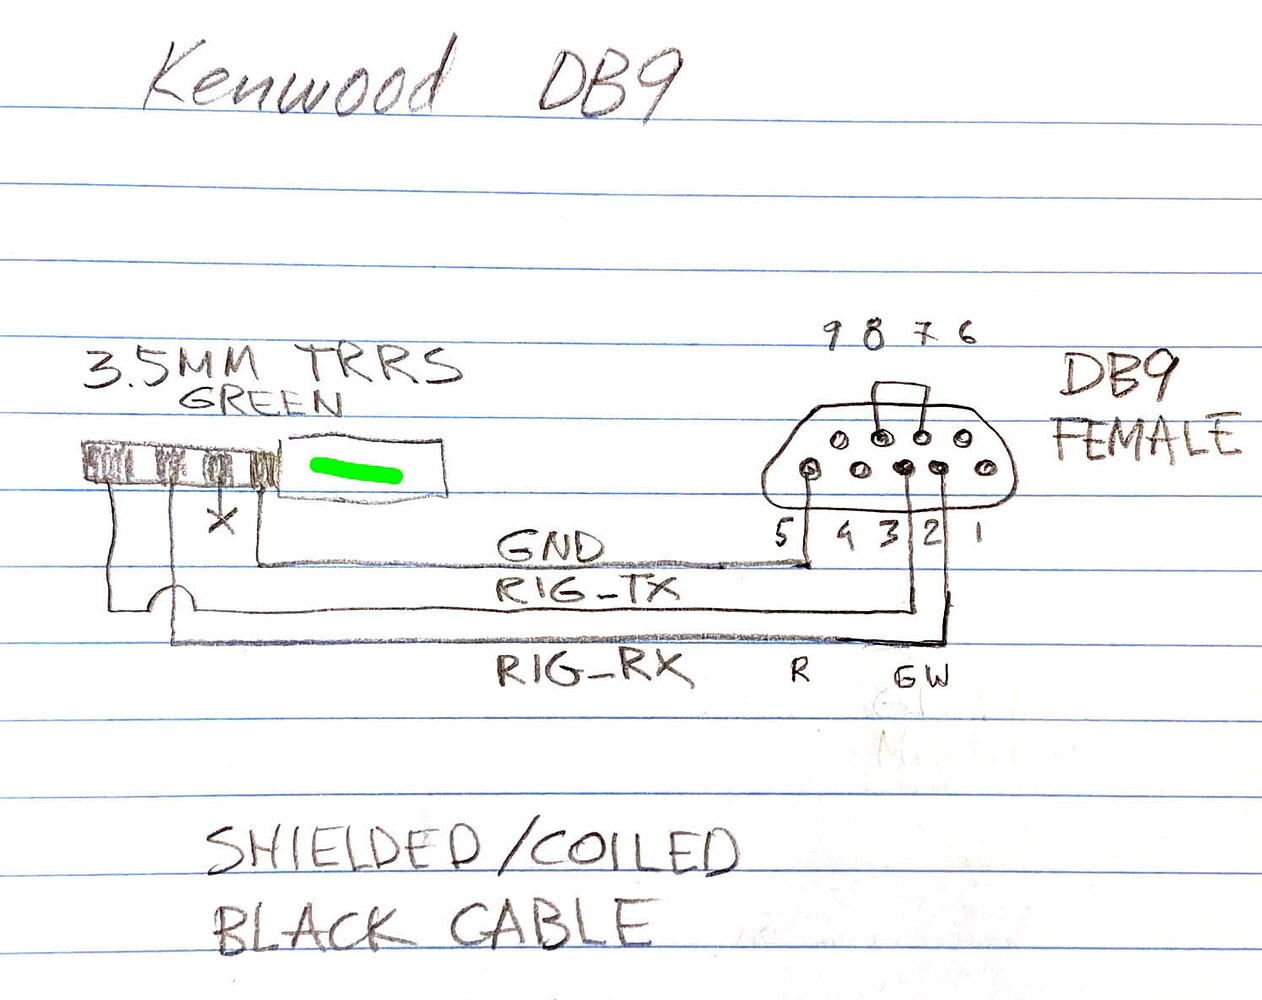 Kenwood DB9
3.5MM TRRS
GREEN
9 8 7 6
DB9
FEMALE
5 4 3 2 1
GND
RIG_TX
RIG_RX
R G W
SHIELDED/COILED
BLACK CABLE